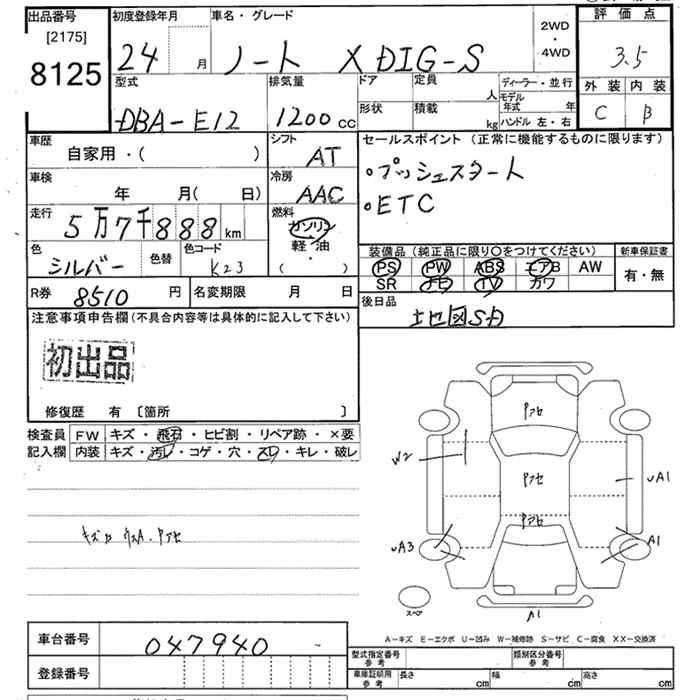 出品番号
[2175]
8125
初度登録年月
24 月
車名・グレード
ノート X DIG-S
2WD
・
4WD
評価点
3.5
外装 内装
C B
型式
DBA-E12
排気量
1200 cc
ドア
形状
定員
人
積載
kg
ディーラー・並行
モデル年式 年
ハンドル 左・右
車歴
自家用・( )
シフト
AT
車検
年 月( 日)
冷房
AAC
走行
5万7千888 km
燃料
ガソリン
軽油
( ・ )
色
シルバー
色替
色コード
K23
R券
8510 円
名変期限 月 日
セールスポイント (正常に機能するものに限ります)
・プッシュスタート
・ETC
装備品 (純正品に限り○をつけてください)
PS PW ABS エアB AW
SR ナビ TV カワ
新車保証書
有・無
後日品
地図SD
注意事項申告欄(不具合内容等は具体的に記入して下さい)
初出品
修復歴 有 〔箇所 〕
検査員
記入欄
FW キズ・飛石・ヒビ割・リペア跡・×要
内装 キズ・汚レ・コゲ・穴・スレ・キレ・破レ
キズカ ウスA.アセ
アセ
W2
アセ
uA1
アセ
uA3
A1
スペア
A1
A-キズ E-エクボ U-凹み W-補修跡 S-サビ C-腐食 XX-交換済
車台番号
047940
登録番号
型式指定番号
参考
類別区分番号
参考
車庫証明用
参考
長さ cm
幅 cm
高さ cm